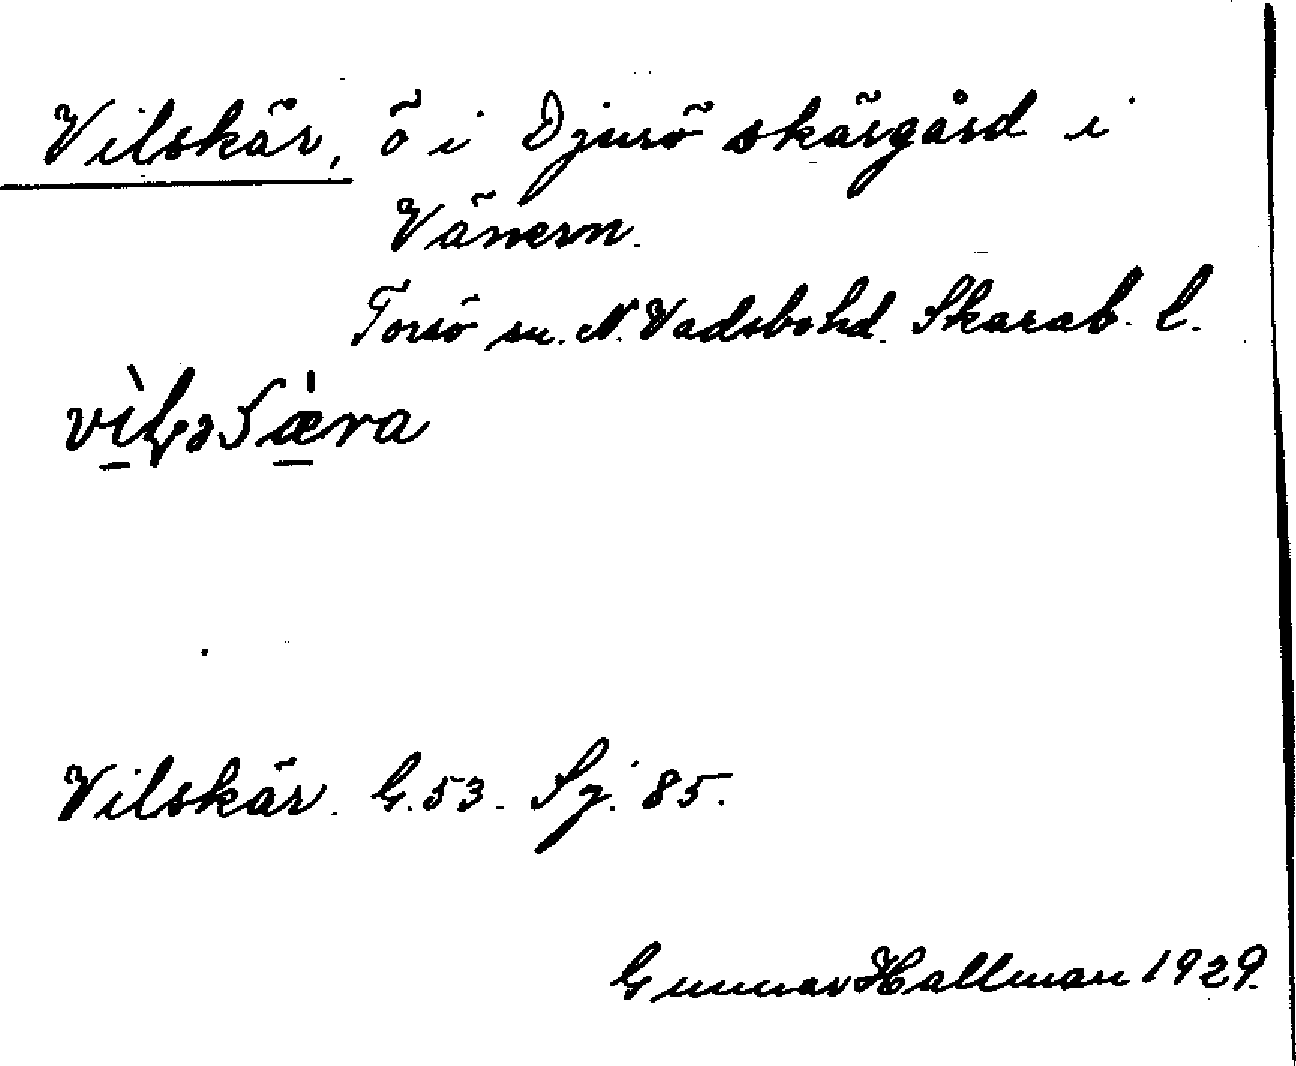 Vilskär, ö i Djurö skärgård i
Vänern.
Torsö sn. N. Vadsbo hd. Skarab. l.
Vilskär. G. 53. Sj. 85.
Gunnar Hallman 1929.